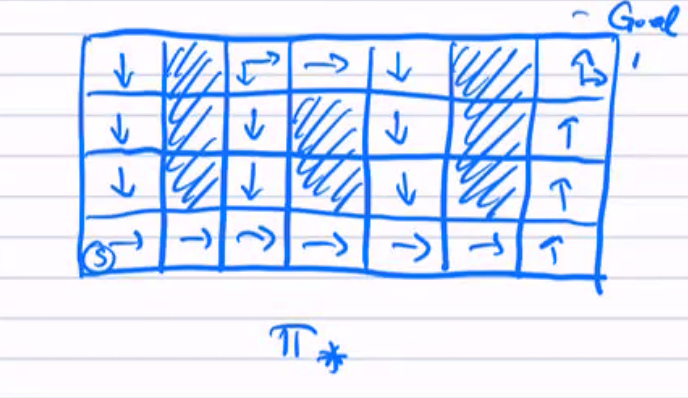 Goal
S
π*